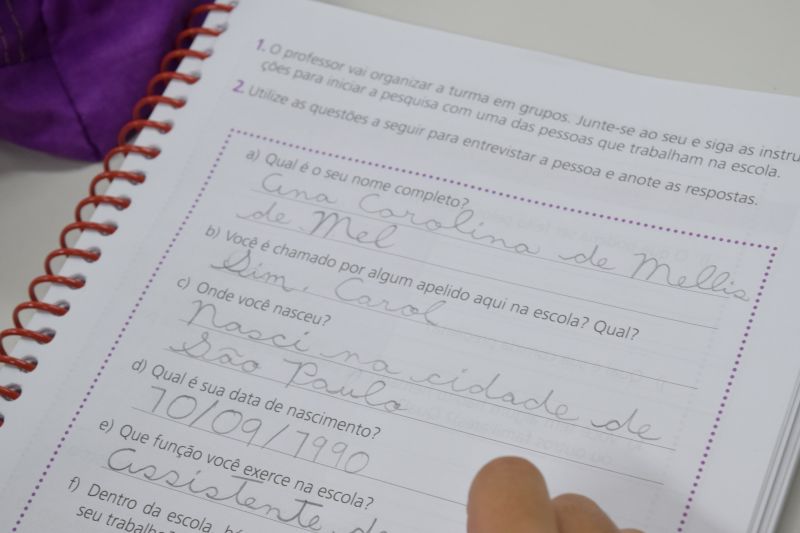 1. O professor vai organizar a turma em grupos. Junte-se ao seu e siga as instru
ções para iniciar a pesquisa com uma das pessoas que trabalham na escola.
2. Utilize as questões a seguir para entrevistar a pessoa e anote as respostas.
a) Qual é o seu nome completo?
Ana Carolina de Mellis
de Mel
b) Você é chamado por algum apelido aqui na escola? Qual?
Sim, Carol
c) Onde você nasceu?
Nasci na cidade de
São Paulo
d) Qual é sua data de nascimento?
10/09/1990
e) Que função você exerce na escola?
Assistente de
f) Dentro da escola,
seu trabalh